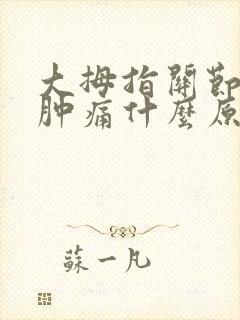 大拇指關節
肿痛什麼原
蘇一凡